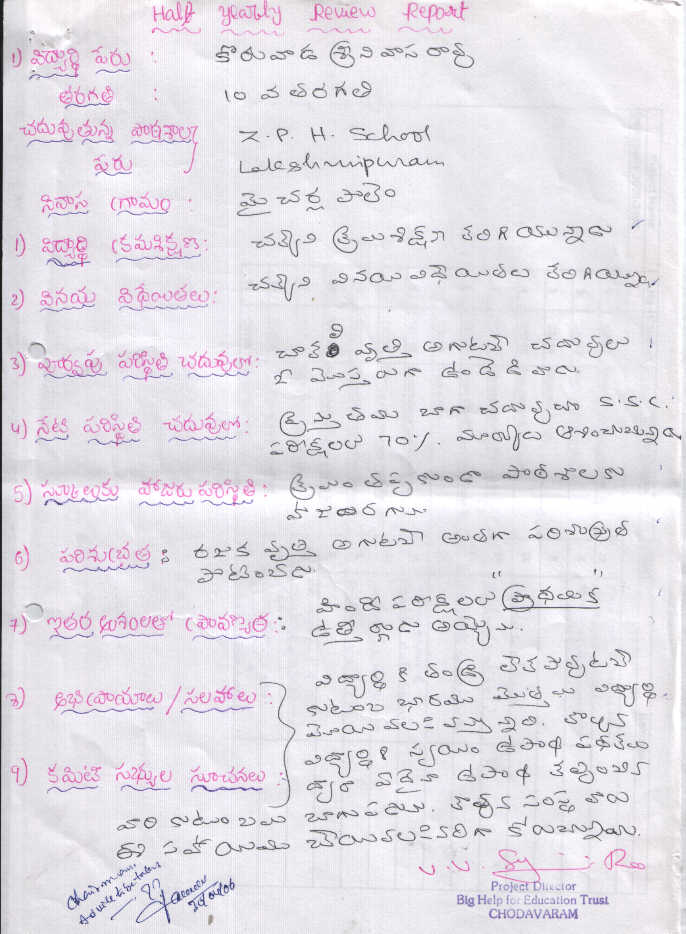 Half yearly Review Report
1) విద్యార్థి పేరు : కొరువాడ శ్రీనివాసరావు
తరగతి : 10 వ తరగతి
చదువుతున్న పాఠశాల Z. P. H. School
పేరు Lakshmipuram
నివాస గ్రామం : మైచర్ల పాలెం
1) విద్యార్థి క్రమశిక్షణ: చక్కని క్రమశిక్షణ కలిగియున్నాడు
2) వినయ విధేయతలు: చక్కని వినయ విధేయతలు కలిగియున్నాడు.
3) పూర్వపు పరిస్థితి చదువులో: చాకలి వృత్తి అగుటచే చదువులు
ఉండెడివారు.
4) నేటి పరిస్థితి చదువులో: ప్రస్తుతము బాగా చదువుచూ S.S.C.
పరీక్షలలో 70%. మార్కులు ఆశించుచున్నాడు
5) స్కూలుకు హాజరు పరిస్థితి: క్రమం తప్పకుండా పాఠశాలకు
హాజరగును
6) పరిశుభ్రత : రజక వృత్తి అగుటచే అంతగా పరిశుభ్రత
పాటించడు.
7) ఇతర అంశాలలో ప్రావీణ్యత : హిందీ పరీక్షలలో "ప్రాథమిక"
ఉత్తీర్ణుడు అయ్యెను.
8) అభిప్రాయాలు / సలహాలు : విద్యార్థికి తండ్రి లేకపోవుటచే
కుటుంబ భారము మొత్తము విద్యార్థి
మోయవలసివస్తున్నది. కావున
9) కమిటీ సభ్యుల సూచనలు : విద్యార్థికి స్వయం ఉపాధి పథకము
ద్వారా ఏదైనా ఉపాధి కల్పించిన
వారి కుటుంబము బాగుపడును. కావున సంస్థ వారు
ఈ సహాయము చేయవలసినదిగా కోరుచున్నాము.
Chairman
Project Director
Big Help for Education Trust
CHODAVARAM